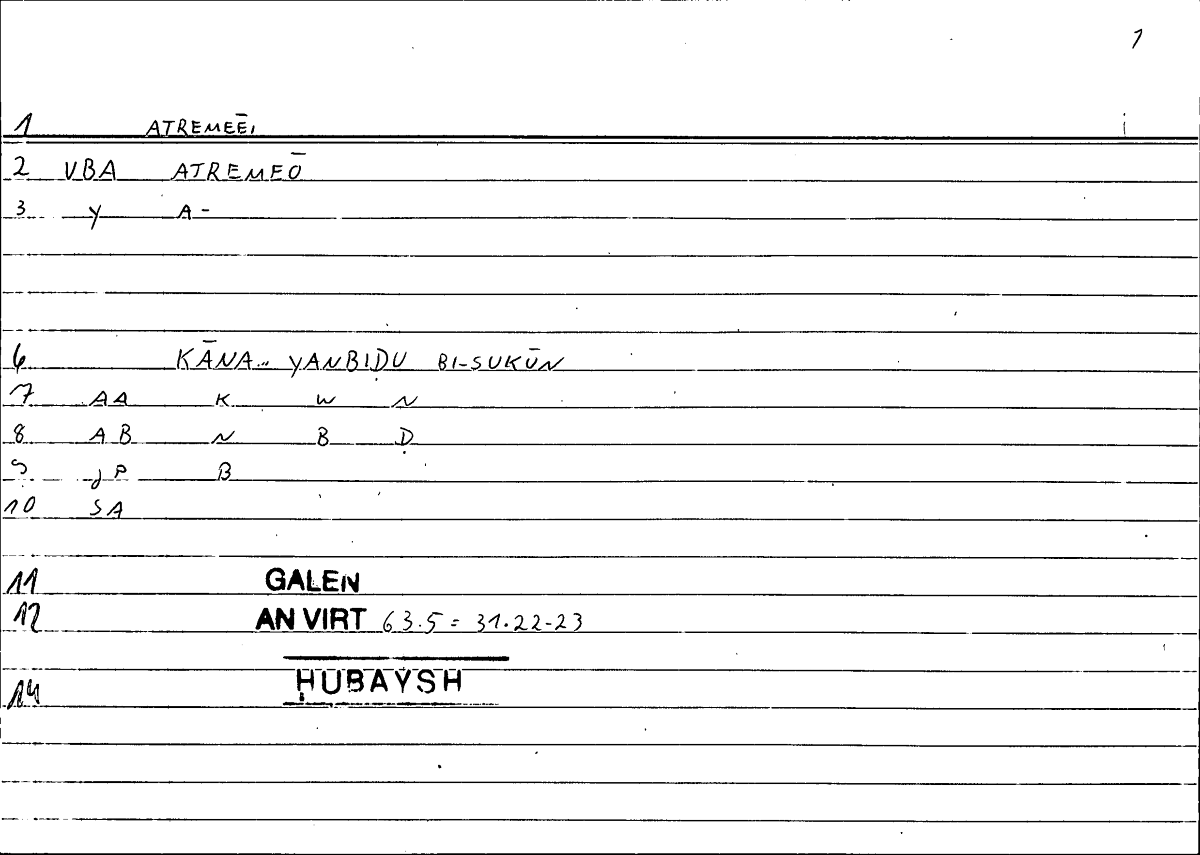 1
1 ATREMEĒI
2 VBA ATREMEŌ
3 Y A-
6 KĀNA... YANBIḌU BI-SUKŪN
7 AA K W N
8 AB N B Ḍ
9 JP B
10 SA
11 GALEN
12 AN VIRT 63.5 = 31.22-23
14 ḤUBAYSH